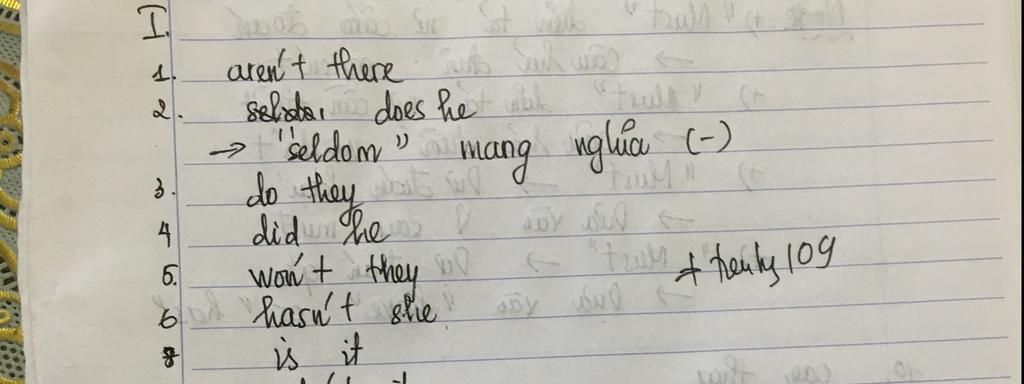 I.
1. aren't there
2. does he
→ "seldom" mang nghĩa (-)
3. do they
4 did he
5. won't they
6 hasn't she
is it